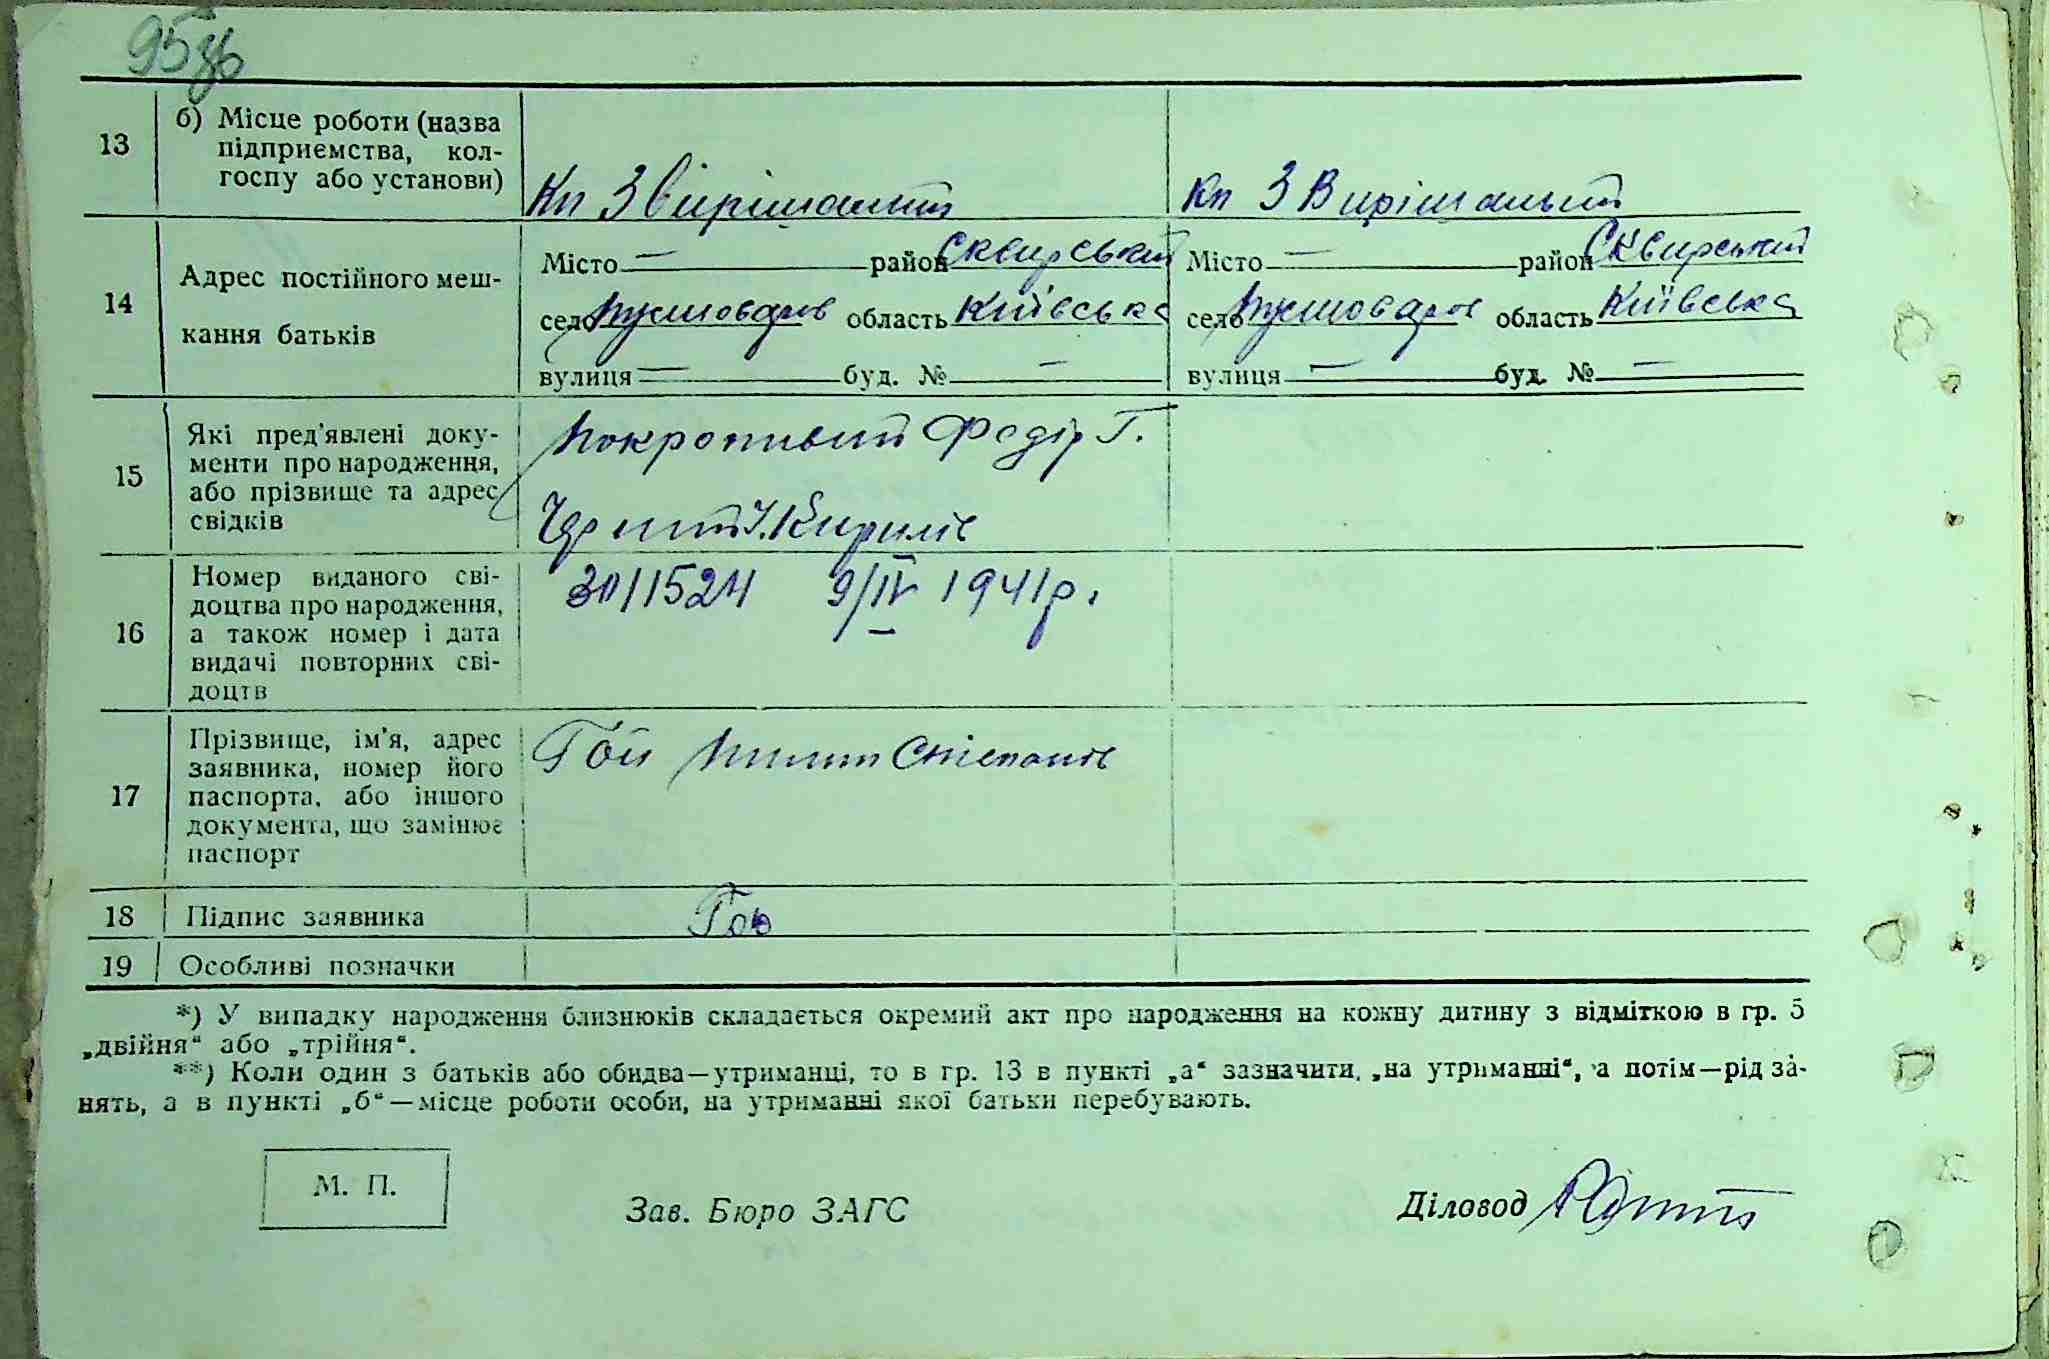 95зв
13
б) Місце роботи (назва
підприємства, кол-
госпу або установи)
Кп 3 Вирішальний
Кп 3 Вирішальний
14
Адрес постійного меш-
кання батьків
Місто — район Сквирський
село Пустоварів область Київська
вулиця — буд. № —
Місто — район Сквирський
село Пустоварів область Київська
вулиця — буд. № —
15
Які пред'явлені доку-
менти про народження,
або прізвище та адрес
свідків
Покропивний Федір Г.
Кирилів
16
Номер виданого сві-
доцтва про народження,
а також номер і дата
видачі повторних сві-
доцтв
9/IV 1941р.
17
Прізвище, ім'я, адрес
заявника, номер його
паспорта, або іншого
документа, що замінює
паспорт
Гой Пилип Степанів
18
Підпис заявника
Гой
19
Особливі позначки
*) У випадку народження близнюків складається окремий акт про народження на кожну дитину з відміткою в гр. 5
„двійня“ або „трійня“.
**) Коли один з батьків або обидва—утриманці, то в гр. 13 в пункті „а“ зазначити, „на утриманні“, а потім—рід за-
нять, а в пункті „б“—місце роботи особи, на утриманні якої батьки перебувають.
М. П.
Зав. Бюро ЗАГС
Діловод